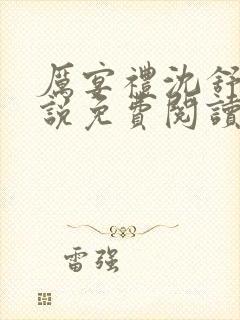 厲宴禮沈舒
說免費閱讀
雷強